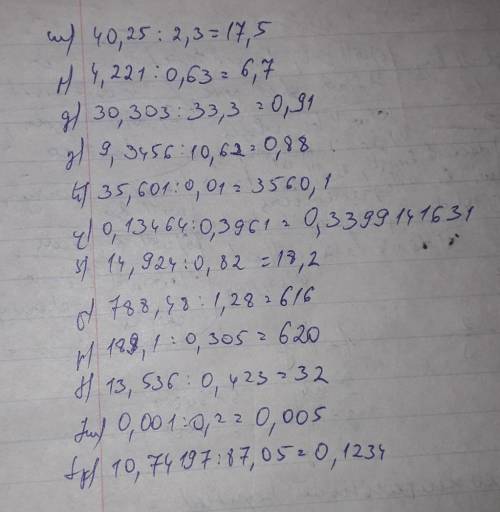 m) 40,25 : 2,3 = 17,5
г) 4,221 : 0,63 = 6,7
д) 30,303 : 33,3 = 0,91
д) 9,3456 : 10,62 = 0,88
к) 35,601 : 0,01 = 3560,1
ч) 0,13464 : 0,3961 = 0,3399141631
з) 14,924 : 0,82 = 18,2
б) 788,48 : 1,28 = 616
р) 189,1 : 0,305 = 620
в) 13,536 : 0,423 = 32
0,001 : 0,2 = 0,005
10,74197 : 87,05 = 0,1234